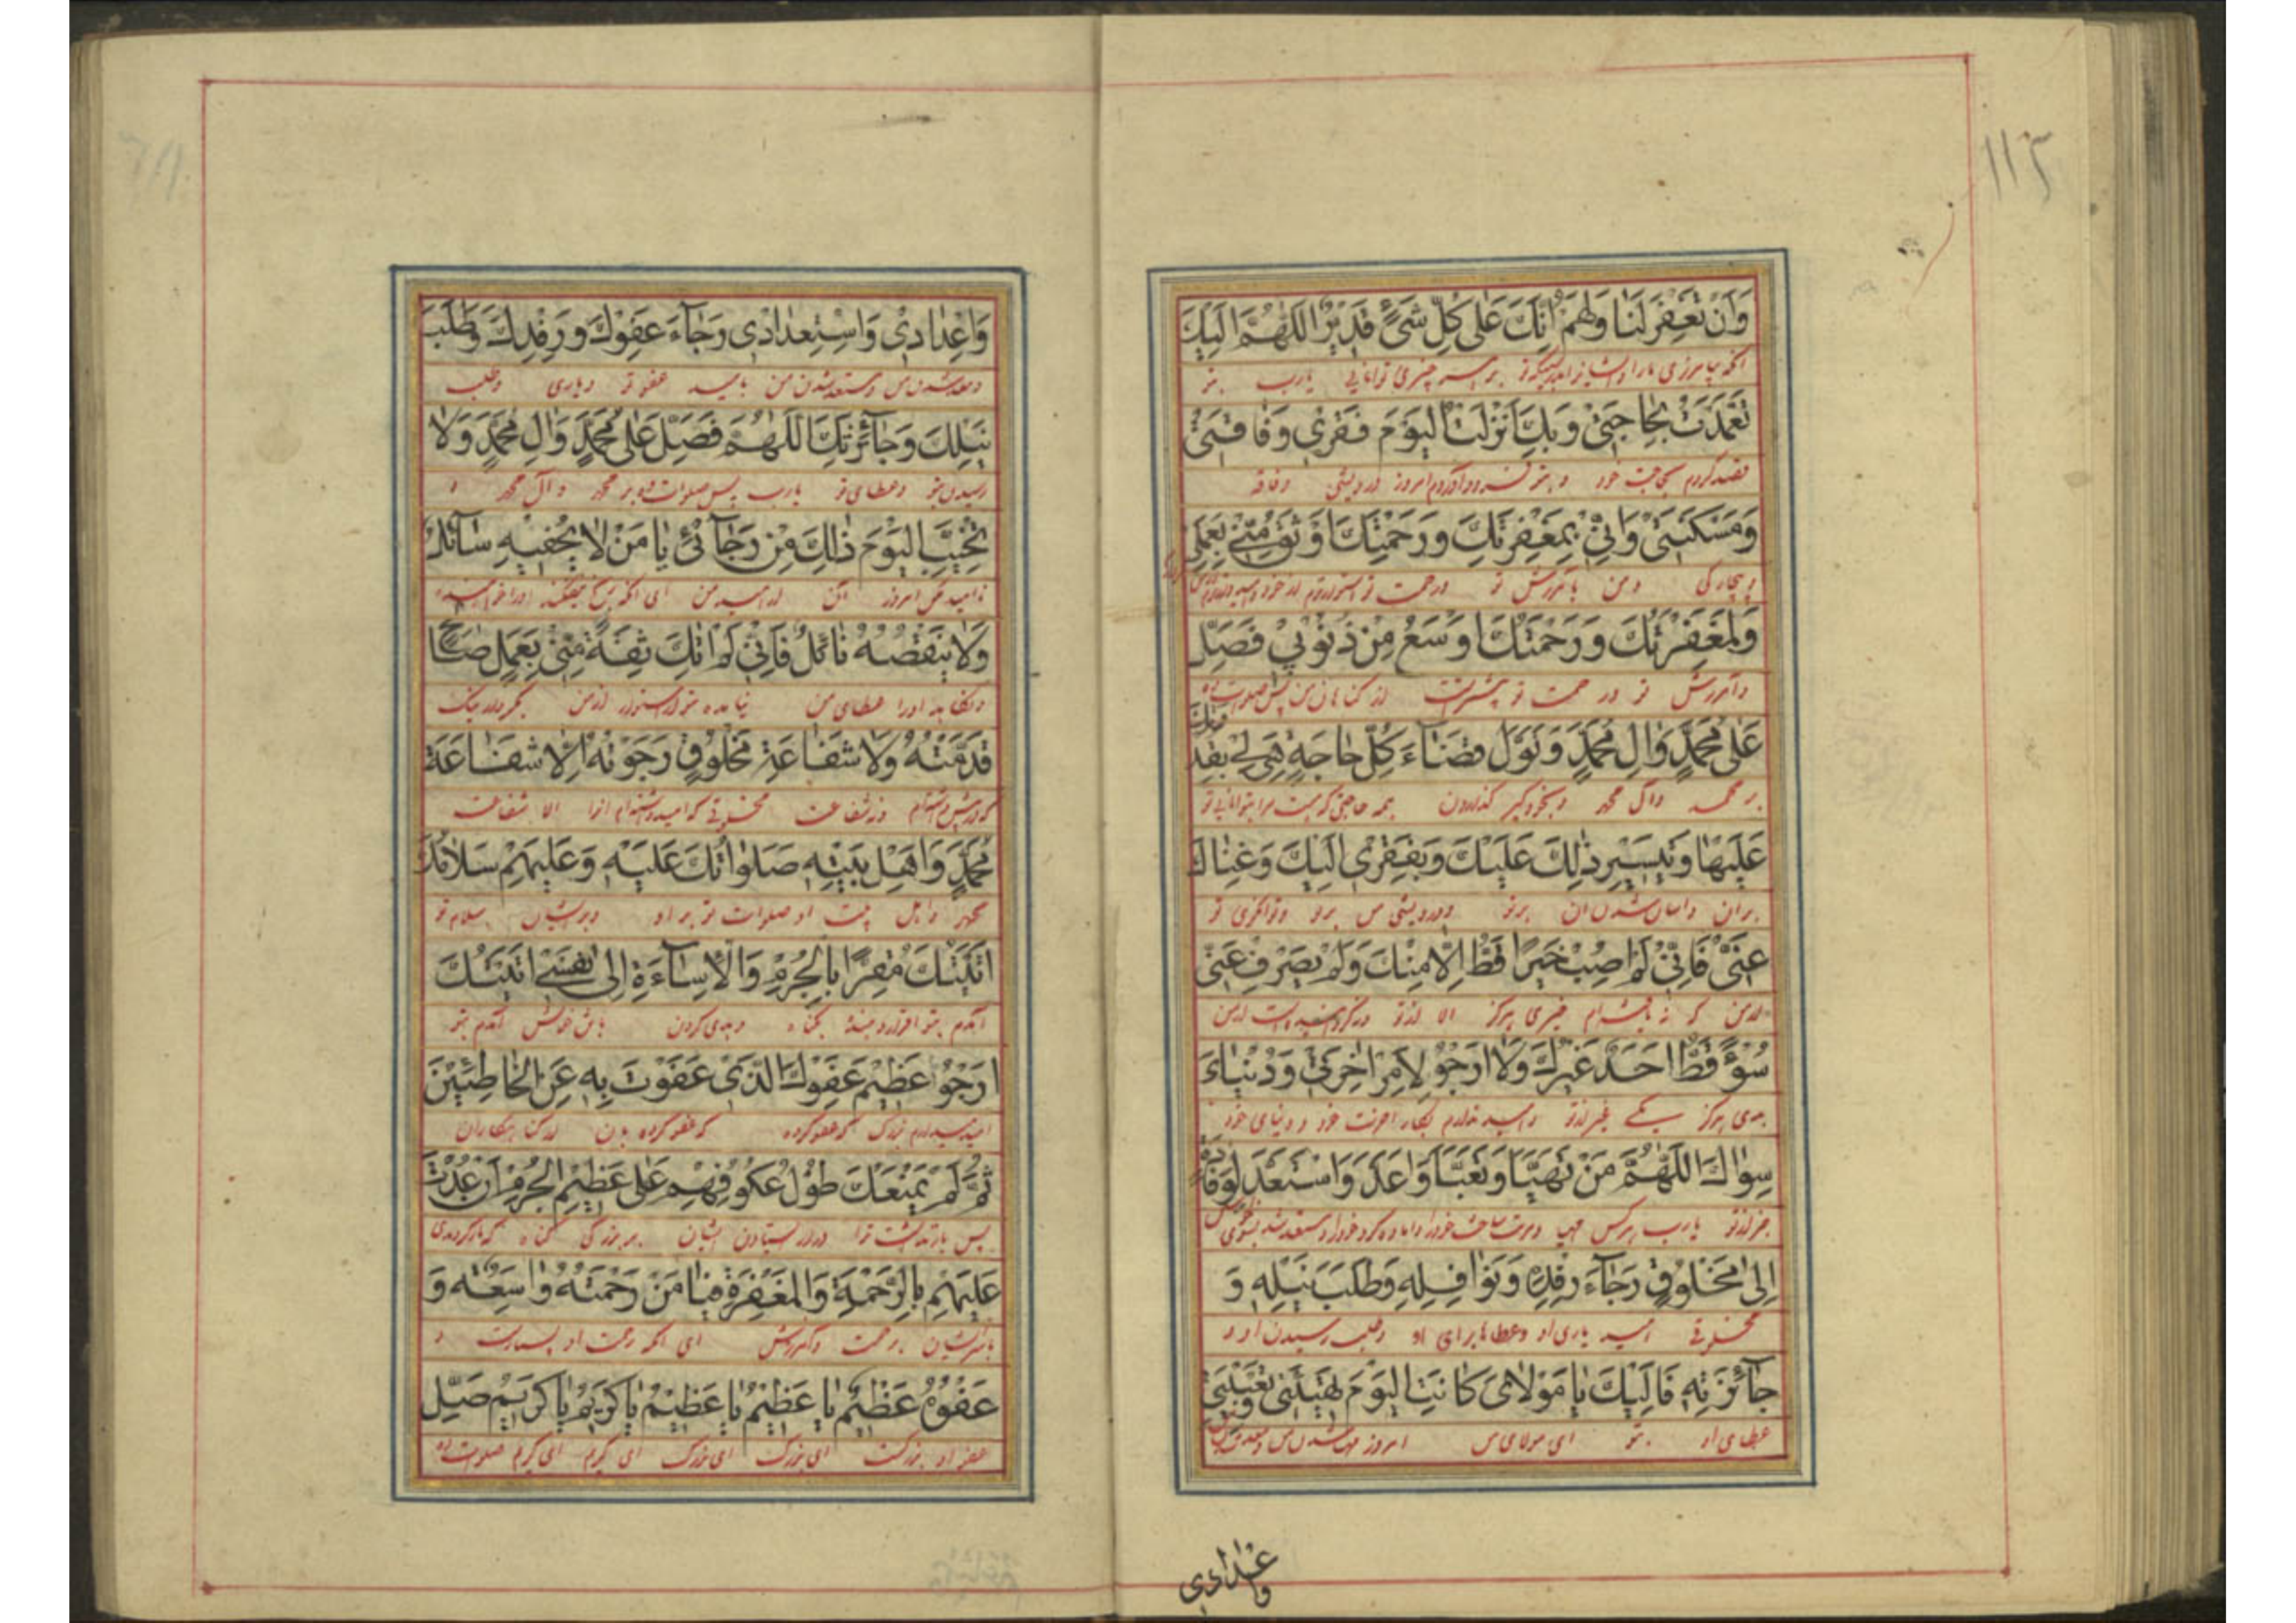 وَاَنْ تَغْفِرَ لَنا وَلَهُمْ اِنَّكَ عَلى كُلِّ شَىْءٍ قَديرٌ اَللّهُمَّ اِلَيْكَ
بر همه چیزی توانایی یارب بتو
تَعَمَّدْتُ بِحاجَتى وَبِكَ اَنْزَلْتُ الْيَوْمَ فَقْرى وَفاقَتى
قصد کردم بحاجت خود و بتو فرود آوردم امروز درویشی وفاقه
وَمَسْكَنَتى وَاِنّى بِمَغْفِرَتِكَ وَرَحْمَتِكَ اَوْثَقُ مِنّى بِعَمَلى
وبیچارگی ومن بآمرزش تو ورحمت تو استوارترم از خود
وَلَمَغْفِرَتُكَ وَرَحْمَتُكَ اَوْسَعُ مِنْ ذُنُوبى فَصَلِّ
وآمرزش تو ورحمت تو بیشتر است از گناهان من پس صلوات ده
عَلى مُحَمَّدٍ وَالِ مُحَمَّدٍ وَتَوَلَّ قَضآءَ كُلِّ حاجَةٍ هِىَ لى بِقُدْرَتِكَ
بر محمد وآل محمد وبخود گیر گذاردن همه حاجتی که هست مرا بتوانایی تو
عَلَيْها وَتَيْسيرِ ذلِكَ عَلَيْكَ وَبِفَقْرى اِلَيْكَ وَغِناكَ
بر آن وآسان شدن آن برتو ودرویشی من برتو وتوانگری تو
عَنّى فَاِنّى لَمْ اُصِبْ خَيْرًا قَطُّ اِلاّ مِنْكَ وَلَمْ يَصْرِفْ عَنّى
از من که نیافته‌ام خیری هرگز الا از تو ونگردانیده است از من
سُوءً قَطُّ اَحَدٌ غَيْرُكَ وَلا اَرْجُو لِاَمْرِ اخِرَتى وَدُنْياىَ
بدی هرگز یکی غیر از تو وامید ندارم بکار آخرت خود ودنیای خود
سِواكَ اَللّهُمَّ مَنْ تَهَيَّاَ وَتَعَبَّاَ وَاَعَدَّ وَاسْتَعَدَّ لِوِفادَةٍ
جز از تو یارب هرکس مهیا
اِلى مَخْلُوقٍ رَجآءَ رِفْدِه وَنَوافِلِه وَطَلَبَ نَيْلِه وَ
مخلوقی امید یاری او وعطاها برای او وطلب رسیدن او و
جآئِزَتِه فَاِلَيْكَ يا مَوْلاىَ كانَتِ الْيَوْمَ تَهْيِئَتى وَتَعْبِيَتى
عطای او بتو ای مولای من امروز مهیا شدن من
واعدادى
وَاِعْدادى وَاسْتِعْدادى رَجآءَ عَفْوِكَ وَرِفْدِكَ وَطَلَبَ
ومعد شدن من ومستعد شدن من بامید عفو تو ویاری وطلب
نَيْلِكَ وَجآئِزَتِكَ اَللّهُمَّ فَصَلِّ عَلى مُحَمَّدٍ وَالِ مُحَمَّدٍ وَلا
رسیدن بتو وعطای تو یارب پس صلوات ده بر محمد وآل محمد و
تُخَيِّبِ الْيَوْمَ ذلِكَ مِنْ رَجآئى يا مَنْ لا يُحْفيهِ سآئِلٌ
ناامید مکن امروز آن از امید من ای آنکه
وَلا يَنْقُصُهُ نآئِلٌ فَاِنّى لَمْ اتِكَ ثِقَةً مِنّى بِعَمَلٍ صالِحٍ
ونکاهد او را عطای من نیامده بتو استوار از من بکردار نیک
قَدَّمْتُهُ وَلا شَفاعَةِ مَخْلُوقٍ رَجَوْتُهُ اِلاّ شَفاعَةَ
که در پیش داشته‌ام ونه شفاعت مخلوقی که امید داشته‌ام او را الا شفاعت
مُحَمَّدٍ وَاَهْلِ بَيْتِه صَلَواتُكَ عَلَيْهِ وَعَلَيْهِمْ سَلامُكَ
محمد واهل بیت او صلوات تو بر او وبر ایشان سلام تو
اَتَيْتُكَ مُقِرًّا بِالْجُرْمِ وَالْاِسآءَةِ اِلى نَفْسى اَتَيْتُكَ
آمدم بتو اقرار دهنده بگناه وبدی کردن با نفس خویش آمدم بتو
اَرْجُو عَظيمَ عَفْوِكَ الَّذى عَفَوْتَ بِه عَنِ الْخاطِئينَ
امید میدارم بزرگ عفو که عفو کرده بآن از گناهکاران
ثُمَّ لَمْ يَمْنَعْكَ طُولُ عُكُوفِهِمْ عَلى عَظيمِ الْجُرْمِ اَنْ عُدْتَ
پس بازنداشت ترا دراز ایستادن ایشان بر بزرگی گناه که بازگردیدی
عَلَيْهِمْ بِالرَّحْمَةِ وَالْمَغْفِرَةِ فَيا مَنْ رَحْمَتُهُ واسِعَةٌ وَ
بر ایشان برحمت وآمرزش ای آنکه رحمت او بسیار است و
عَفْوُهُ عَظيمٌ يا عَظيمُ يا عَظيمُ يا كَريمُ يا كَريمُ صَلِّ
عفو او بزرگست ای بزرگ ای بزرگ ای کریم ای کریم صلوات ده